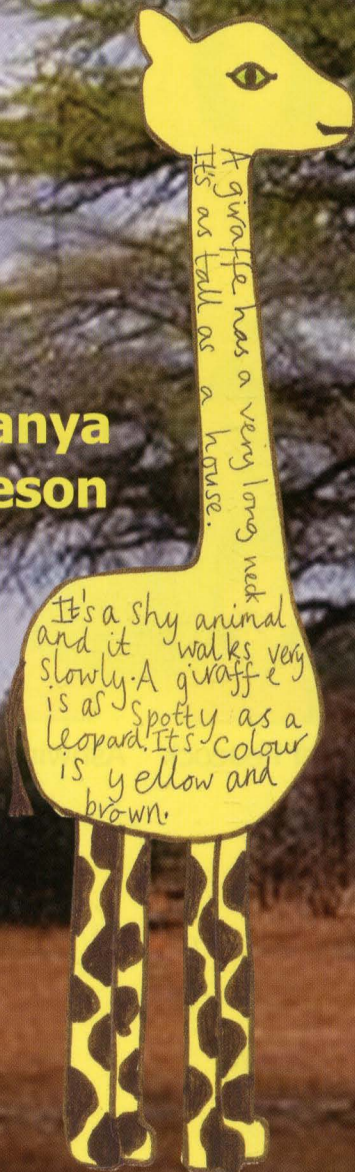 anya
eson
A giraffe has a very long neck
It's as tall as a house.
It's a shy animal
and it walks very
slowly. A giraffe
is as spotty as a
leopard. Its colour
is yellow and
brown.